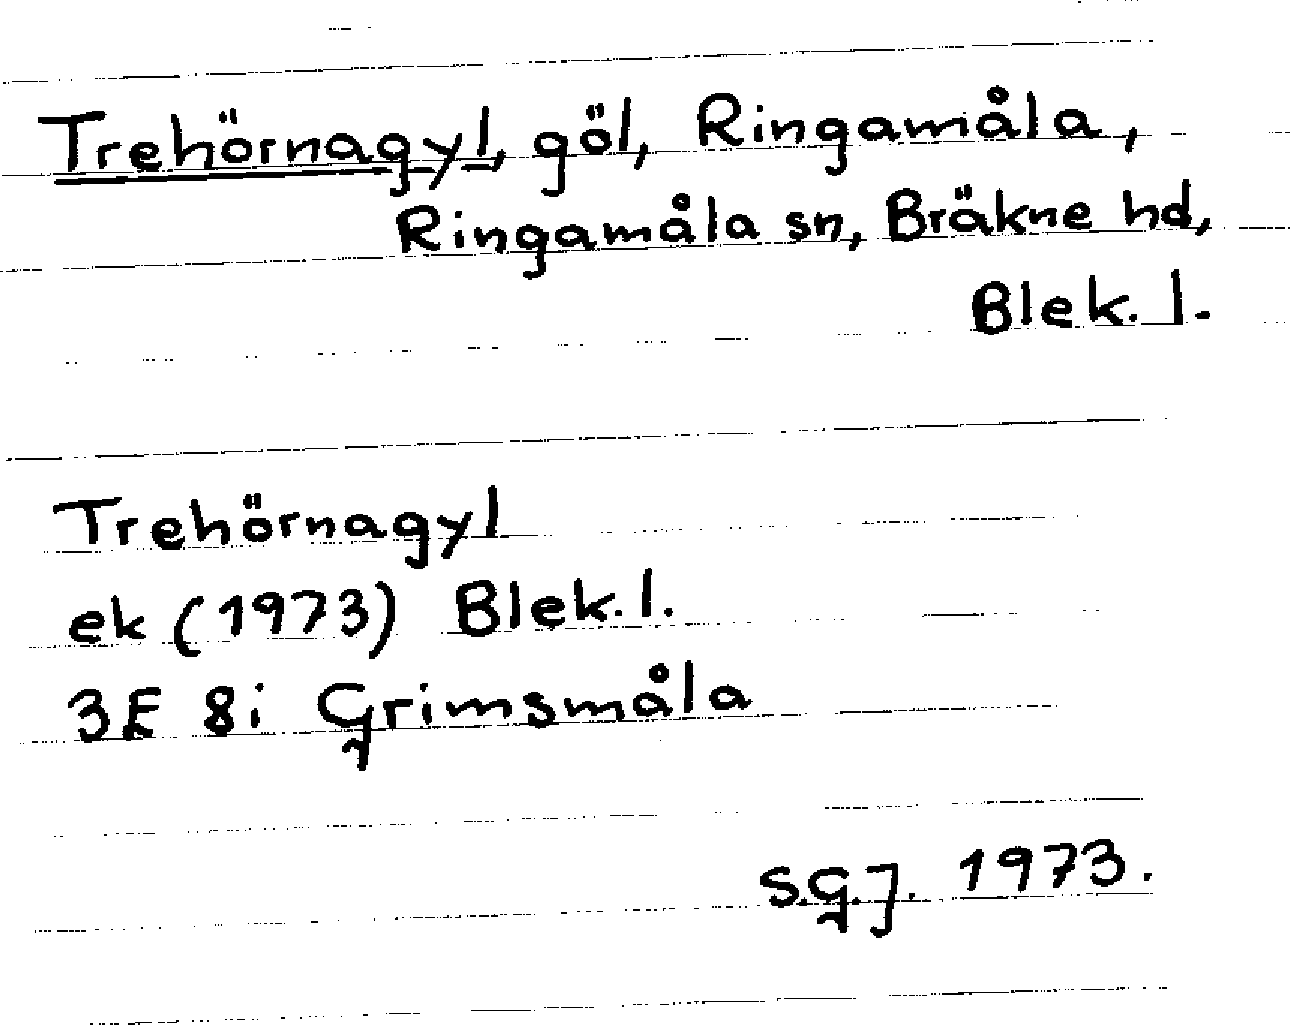 Trehörnagyl, göl, Ringamåla,
Ringamåla sn, Bräkne hd,
Blek. l.
Trehörnagyl
ek (1973) Blek. l.
3E 8i Grimsmåla
S.G.J. 1973.